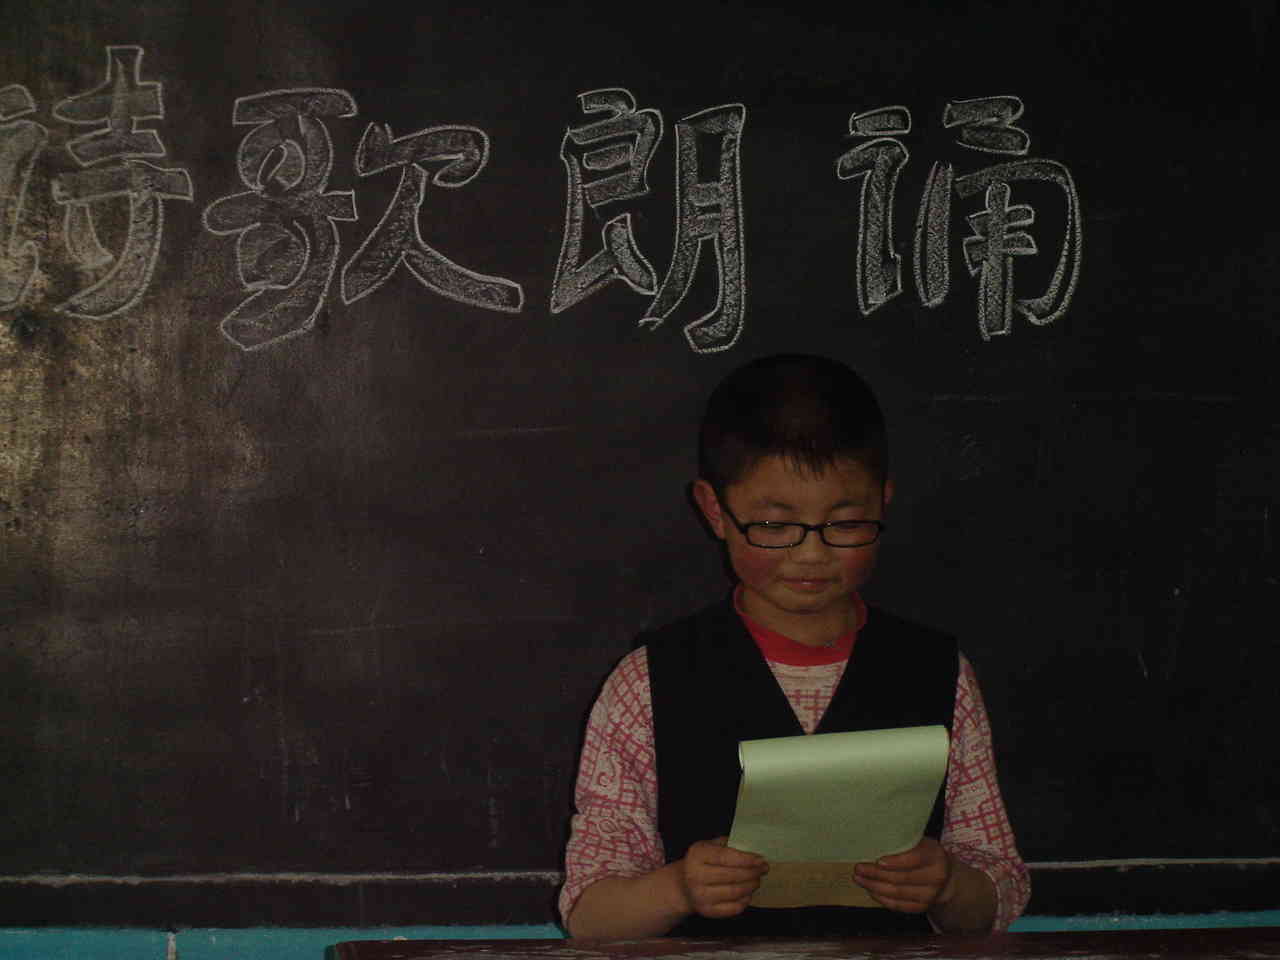 诗歌朗诵